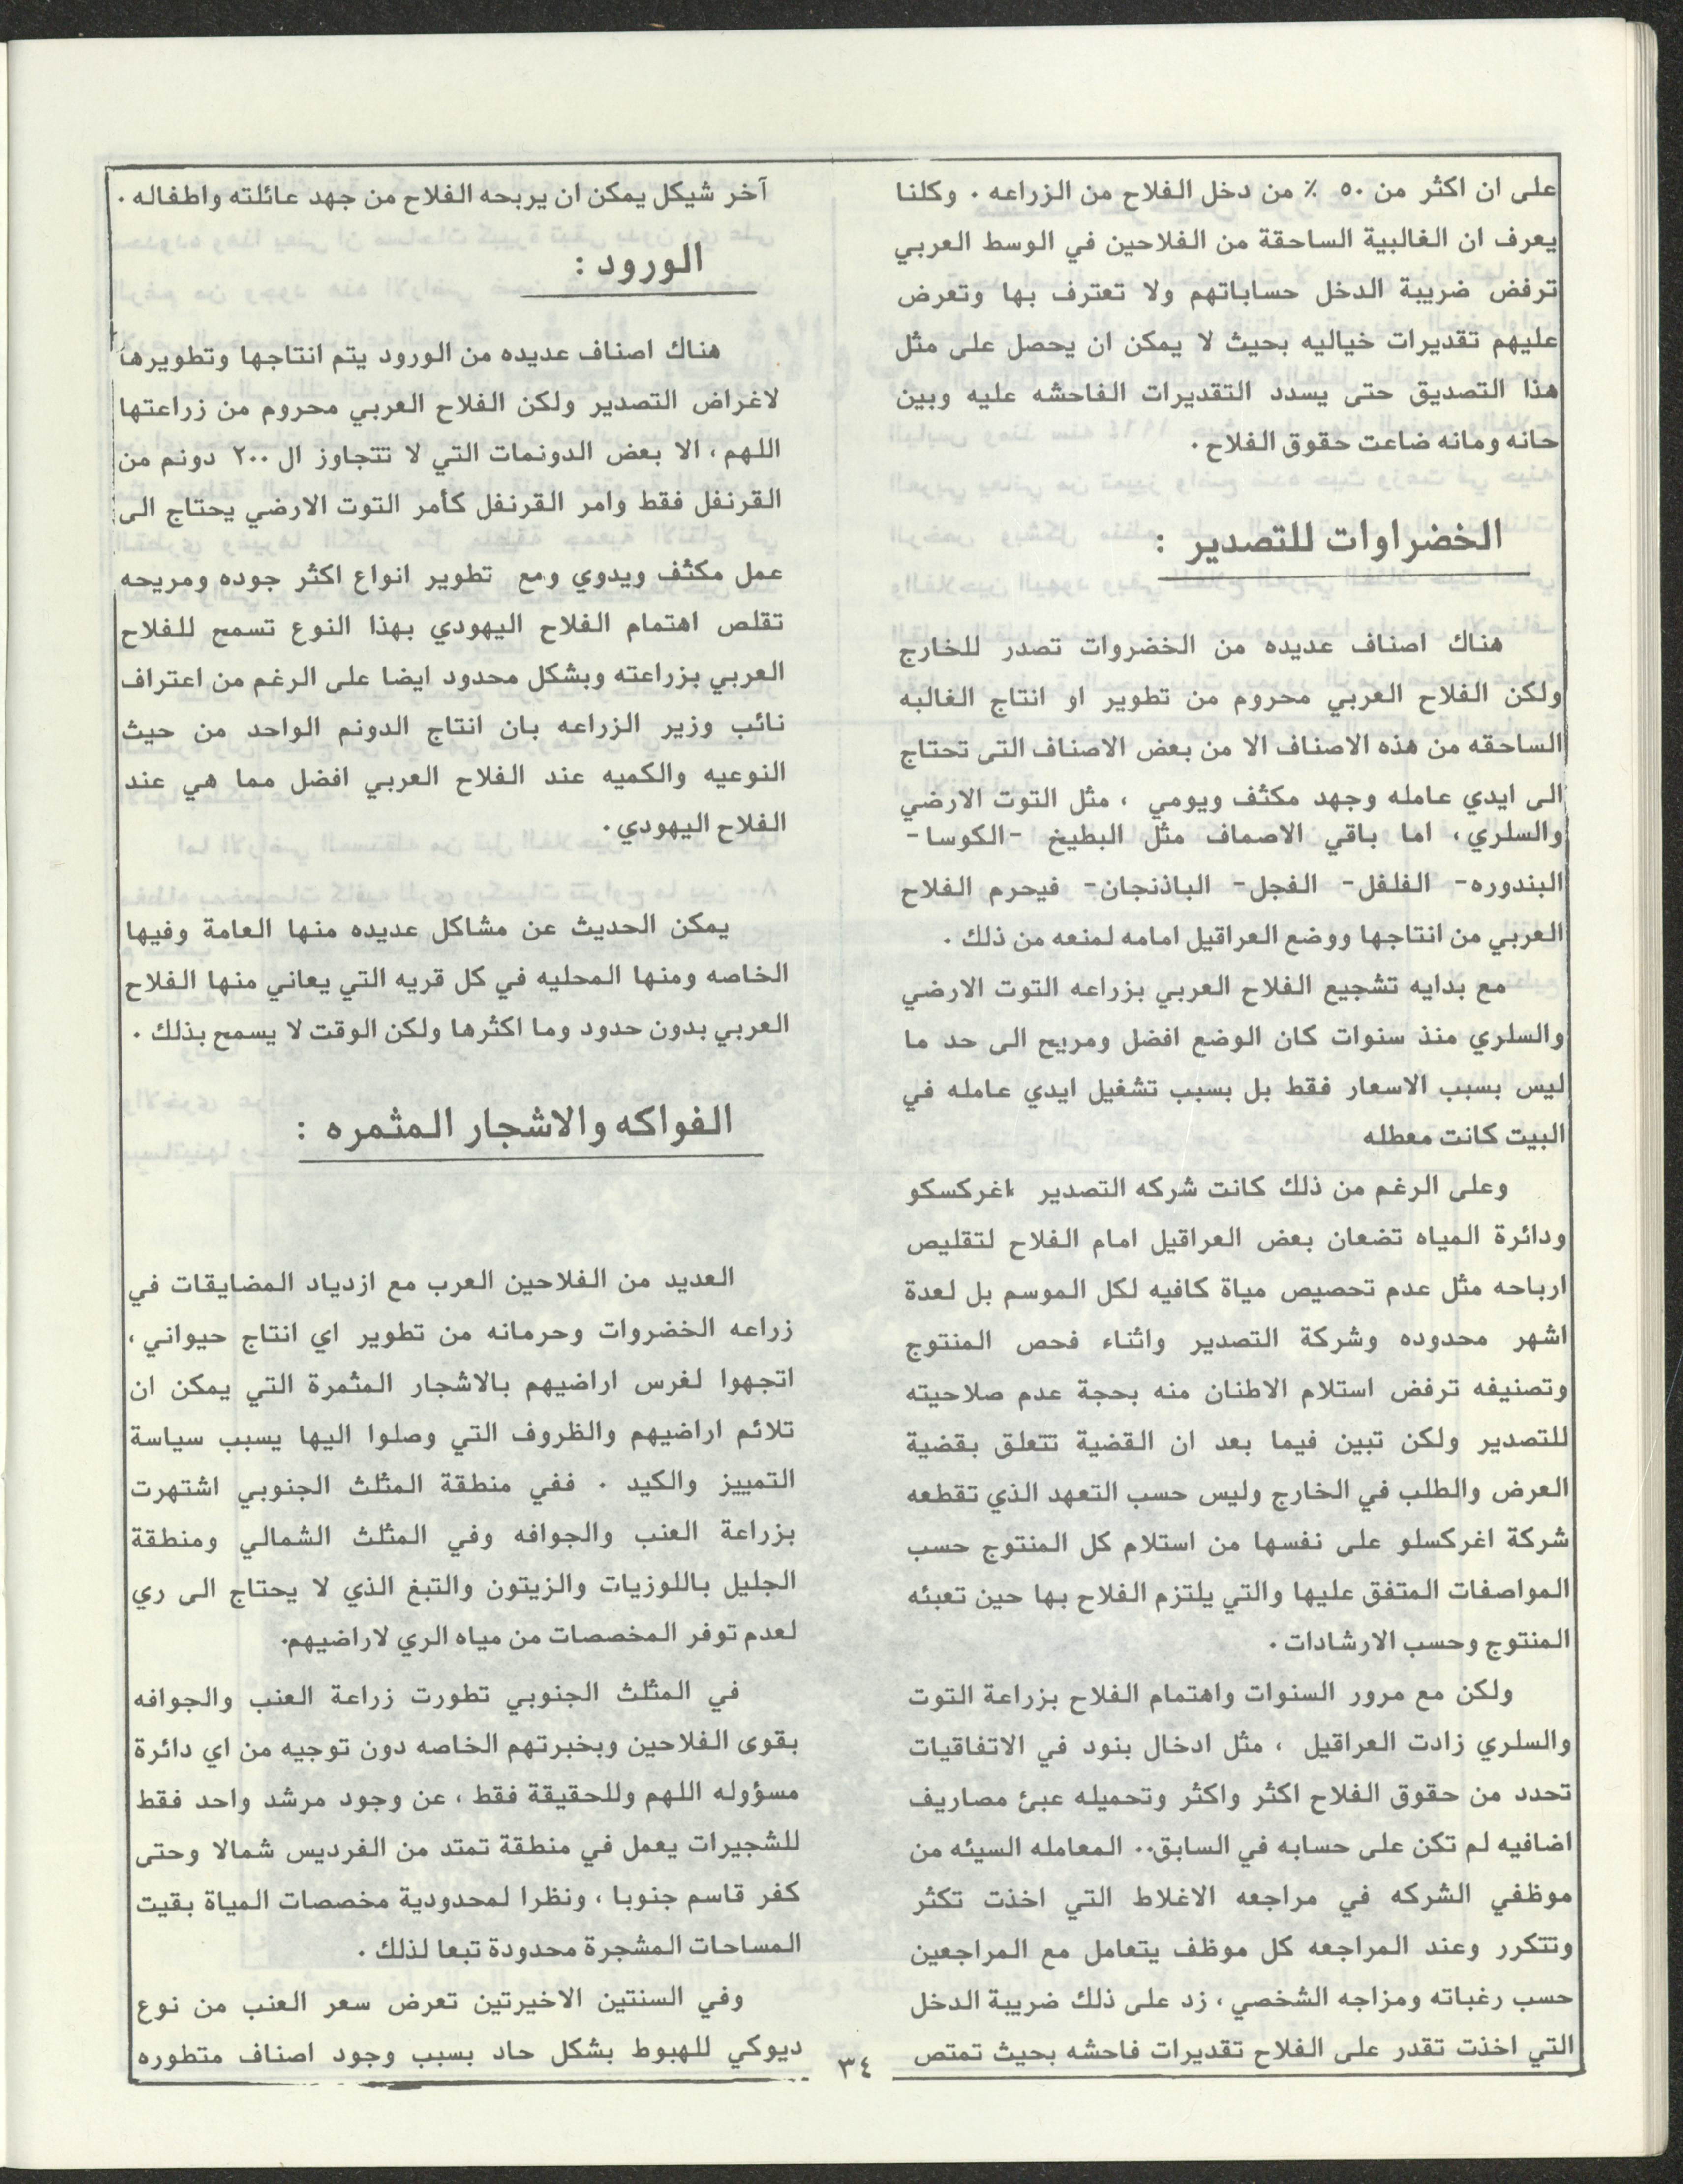 على ان اكثر من ٥٠ ٪ من دخل الفلاح من الزراعه . وكلنا
يعرف ان الغالبية الساحقة من الفلاحين في الوسط العربي
ترفض ضريبة الدخل حساباتهم ولا تعترف بها وتعرض
عليهم تقديرات خياليه بحيث لا يمكن ان يحصل على مثل
هذا التصديق حتى يسدد التقديرات الفاحشه عليه وبين
حانه ومانه ضاعت حقوق الفلاح .
الخضراوات للتصدير :
هناك اصناف عديده من الخضروات تصدر للخارج
ولكن الفلاح العربي محروم من تطوير او انتاج الغالبه
الساحقه من هذه الاصناف الا من بعض الاصناف التى تحتاج
الى ايدي عامله وجهد مكثف ويومي ، مثل التوت الارضي
والسلري، اما باقي الاصماف مثل البطيخ -الكوسا-
البندوره- الفلفل- الفجل- الباذنجان- فيحرم الفلاح
العربي من انتاجها ووضع العراقيل امامه لمنعه من ذلك .
مع بدايه تشجيع الفلاح العربي بزراعه التوت الارضي
والسلري منذ سنوات كان الوضع افضل ومريح الى حد ما
ليس بسبب الاسعار فقط بل بسبب تشغيل ايدي عامله في
البيت كانت معطله
وعلى الرغم من ذلك كانت شركه التصدير اغركسكو
ودائرة المياه تضعان بعض العراقيل امام الفلاح لتقليص
ارباحه مثل عدم تحصيص مياة كافيه لكل الموسم بل لعدة
اشهر محدوده وشركة التصدير واثناء فحص المنتوج
وتصنيفه ترفض استلام الاطنان منه بحجة عدم صلاحيته
للتصدير ولكن تبين فيما بعد ان القضية تتعلق بقضية
العرض والطلب في الخارج وليس حسب التعهد الذي تقطعه
شركة اغركسلو على نفسها من استلام كل المنتوج حسب
المواصفات المتفق عليها والتي يلتزم الفلاح بها حين تعبئه
المنتوج وحسب الارشادات .
ولكن مع مرور السنوات واهتمام الفلاح بزراعة التوت
والسلري زادت العراقيل ، مثل ادخال بنود في الاتفاقيات
تحدد من حقوق الفلاح اكثر واكثر وتحميله عبئ مصاريف
اضافيه لم تكن على حسابه في السابق.. المعامله السيئه من
موظفي الشركه في مراجعه الاغلاط التي اخذت تكثر
وتتكرر وعند المراجعه كل موظف يتعامل مع المراجعين
حسب رغباته ومزاجه الشخصي ، زد على ذلك ضريبة الدخل
التي اخذت تقدر على الفلاح تقديرات فاحشه بحيث تمتص
آخر شيكل يمكن ان يربحه الفلاح من جهد عائلته واطفاله .
الورود :
هناك اصناف عديده من الورود يتم انتاجها وتطويرها
لاغراض التصدير ولكن الفلاح العربي محروم من زراعتها
اللهم ، الا بعض الدونمات التي لا تتجاوز ال ٢٠٠ دونم من
القرنفل فقط وامر القرنفل كأمر التوت الارضي يحتاج الى
عمل مكثف ويدوي ومع تطوير انواع اكثر جوده ومريحه
تقلص اهتمام الفلاح اليهودي بهذا النوع تسمح للفلاح
العربي بزراعته وبشكل محدود ايضا على الرغم من اعتراف
نائب وزير الزراعه بان انتاج الدونم الواحد من حيث
النوعيه والكميه عند الفلاح العربي افضل مما هي عند
الفلاح اليهودي .
يمكن الحديث عن مشاكل عديده منها العامة وفيها
الخاصه ومنها المحليه في كل قريه التي يعاني منها الفلاح
العربي بدون حدود وما اكثرها ولكن الوقت لا يسمح بذلك .
الفواكه والاشجار المثمره :
العديد من الفلاحين العرب مع ازدياد المضايقات في
زراعه الخضروات وحرمانه من تطوير اي انتاج حيواني ،
اتجهوا لغرس اراضيهم بالاشجار المثمرة التي يمكن ان
تلائم اراضيهم والظروف التي وصلوا اليها يسبب سياسة
التمييز والكيد . ففي منطقة المثلث الجنوبي اشتهرت
بزراعة العنب والجوافه وفي المثلث الشمالي ومنطقة
الجليل باللوزيات والزيتون والتبغ الذي لا يحتاج الى ري
لعدم توفر المخصصات من مياه الري لاراضيهم.
في المثلث الجنوبي تطورت زراعة العنب والجوافه
بقوى الفلاحين وبخبرتهم الخاصه دون توجيه من اي دائرة
مسؤوله اللهم وللحقيقة فقط ، عن وجود مرشد واحد فقط
للشجيرات يعمل في منطقة تمتد من الفرديس شمالا وحتى
كفر قاسم جنوبا ، ونظرا لمحدودية مخصصات المياة بقيت
المساحات المشجرة محدودة تبعا لذلك .
وفي السنتين الاخيرتين تعرض سعر العنب من نوع
ديوكي للهبوط بشكل حاد بسبب وجود اصناف متطوره
٣٤